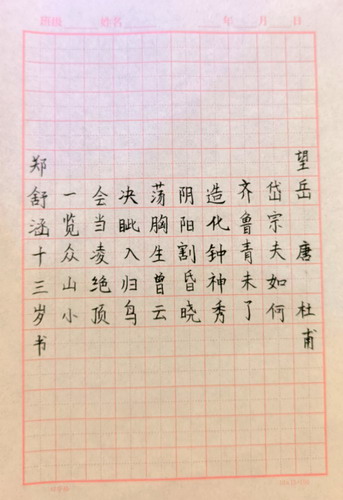 班级 姓名 年 月 日
望岳 唐 杜甫
岱宗夫如何
齐鲁青未了
造化钟神秀
阴阳割昏晓
荡胸生曾云
决眦入归鸟
会当凌绝顶
一览众山小
郑舒涵十三岁书